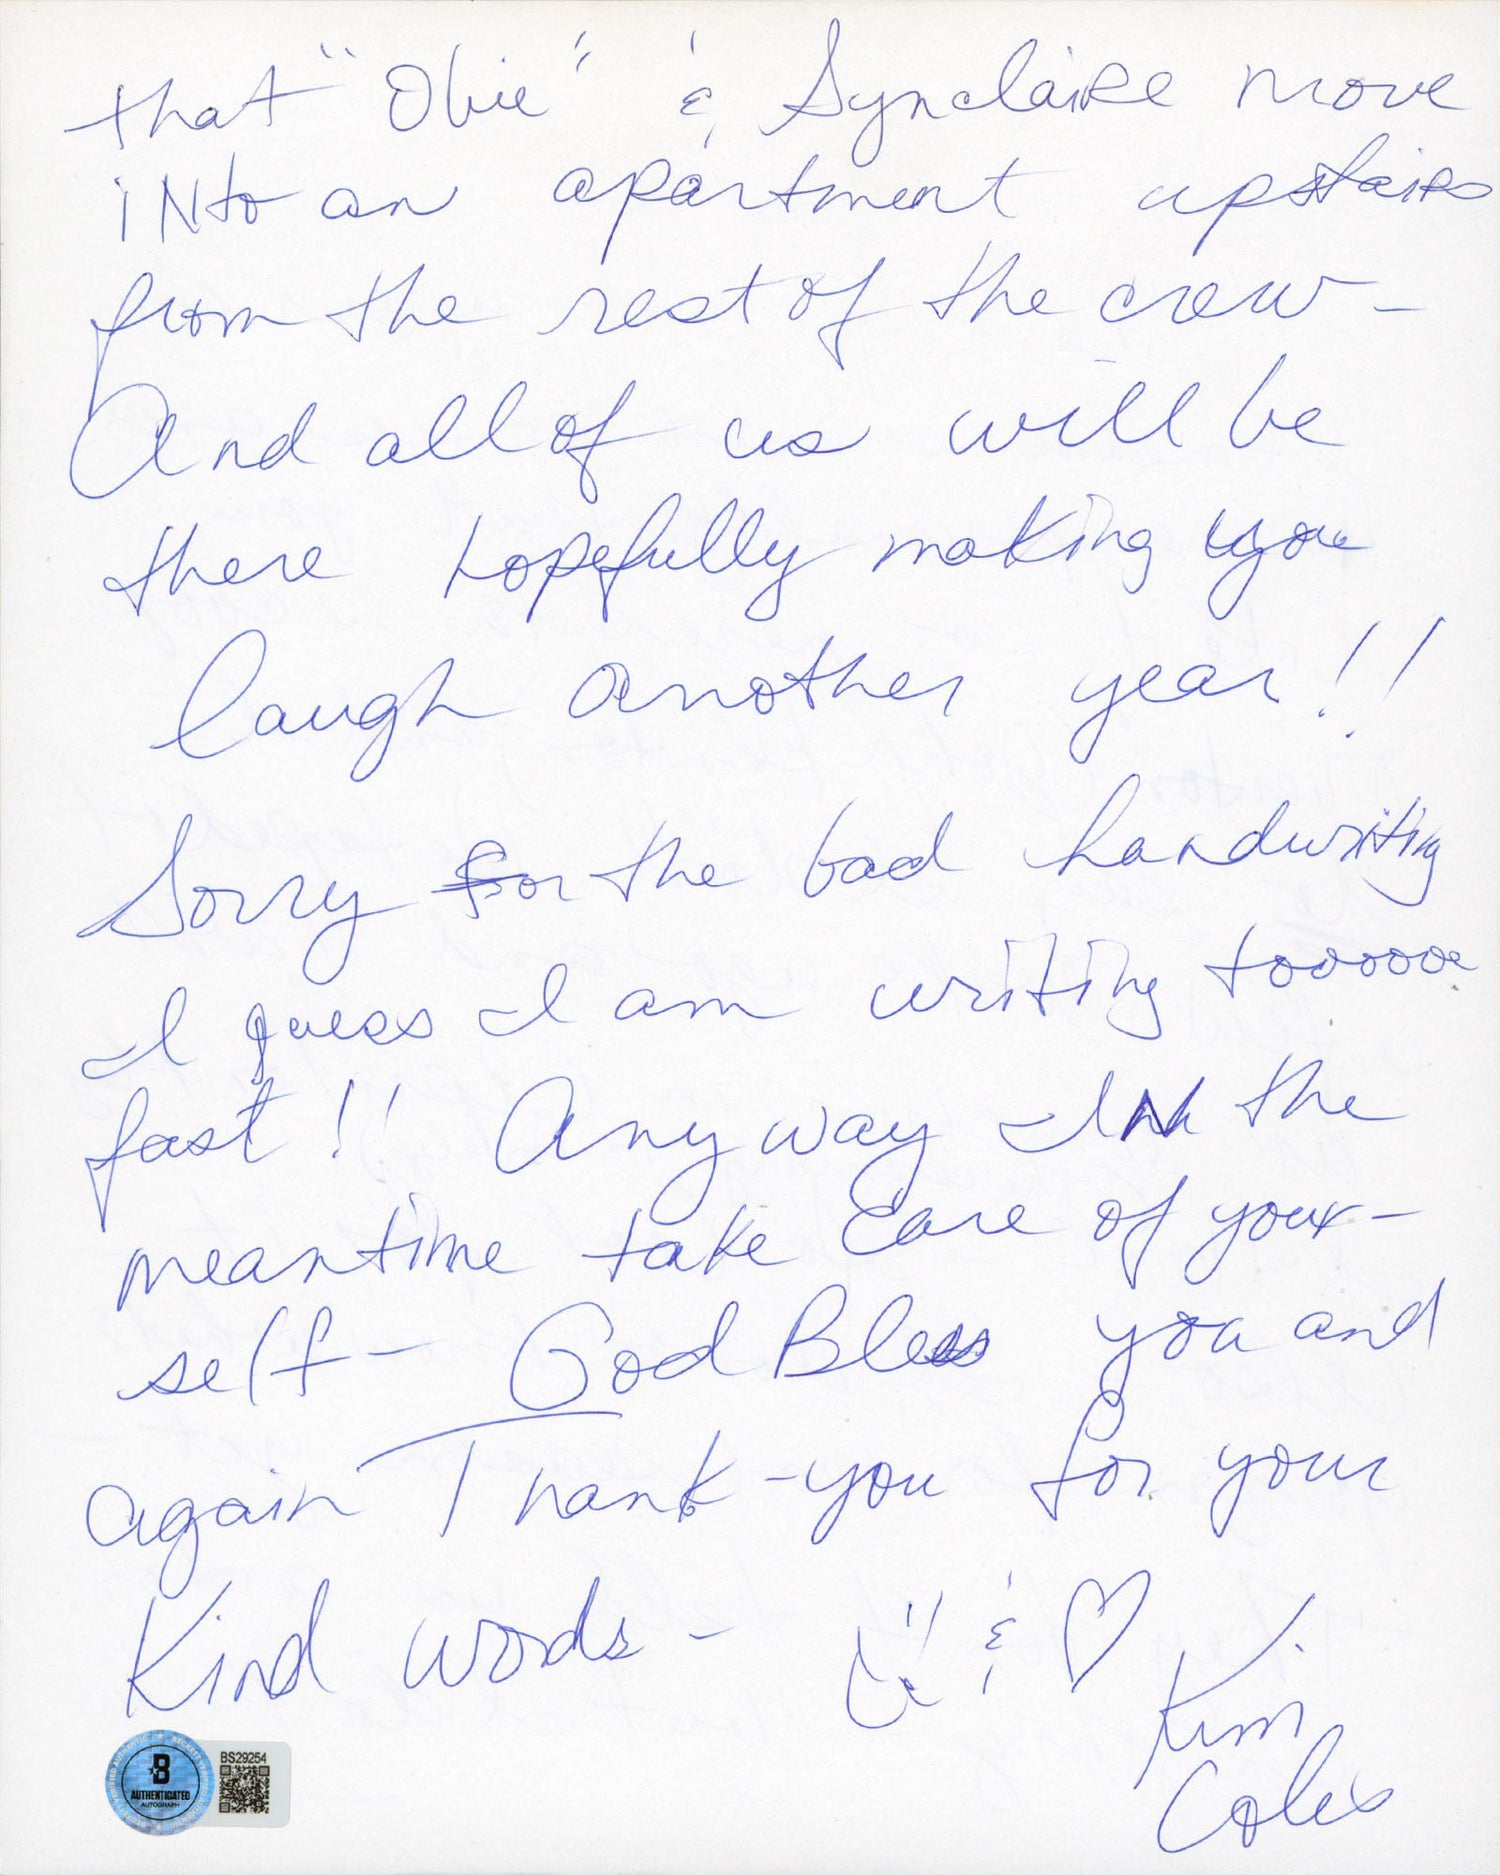 that "Obie" & Synclaire move
into an apartment upstairs
from the rest of the crew -
And all of us will be
there hopefully making you
laugh another year!!
Sorry for the bad handwriting
I guess I am writing toooooo
fast!! Anyway In the
meantime take care of your-
self - God Bless you and
again Thank-you for your
Kind words - & ♡
Kim
Coles
B
AUTHENTICATED
AUTOGRAPH
BS29254